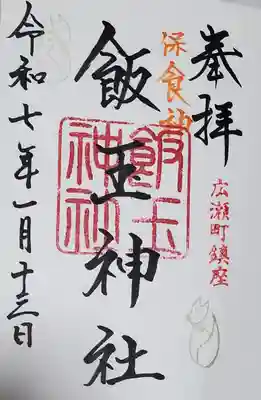 奉拝
広瀬町鎮座
保食神
飯玉神社
飯玉
神社
令和七年一月十三日